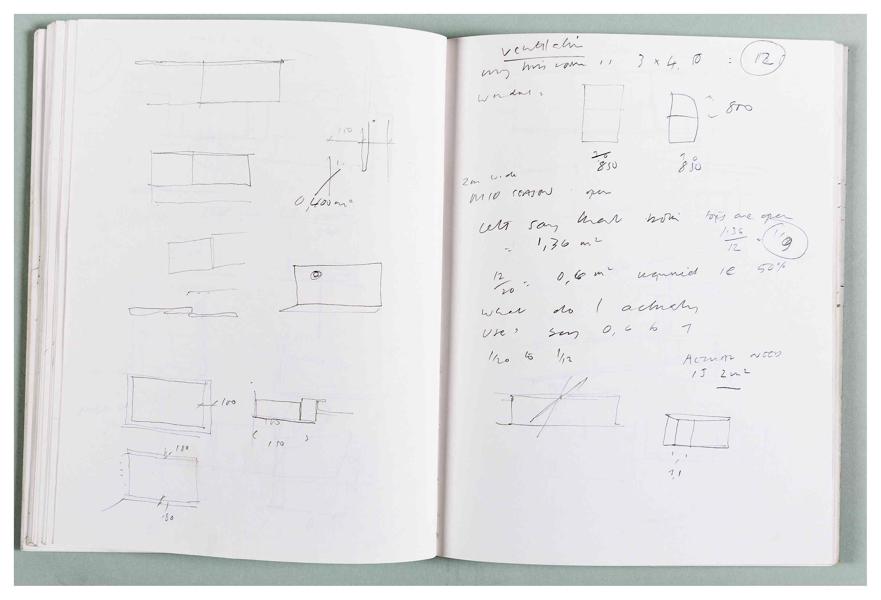 150
0,400 m²
100
100
150
180
180
ventilation
my this room is 3 x 4. = 12
window:
800
850
850
2m wide
MID SEASON open
Let's say that both tops are open
= 1,36 m²
1.36
12
= 1/9
12
20
= 0,6 m² required ie 50%
what do I actually
use? say 0,6 to 1
1/20 to 1/12
ACTUAL NEED
IS 2m²